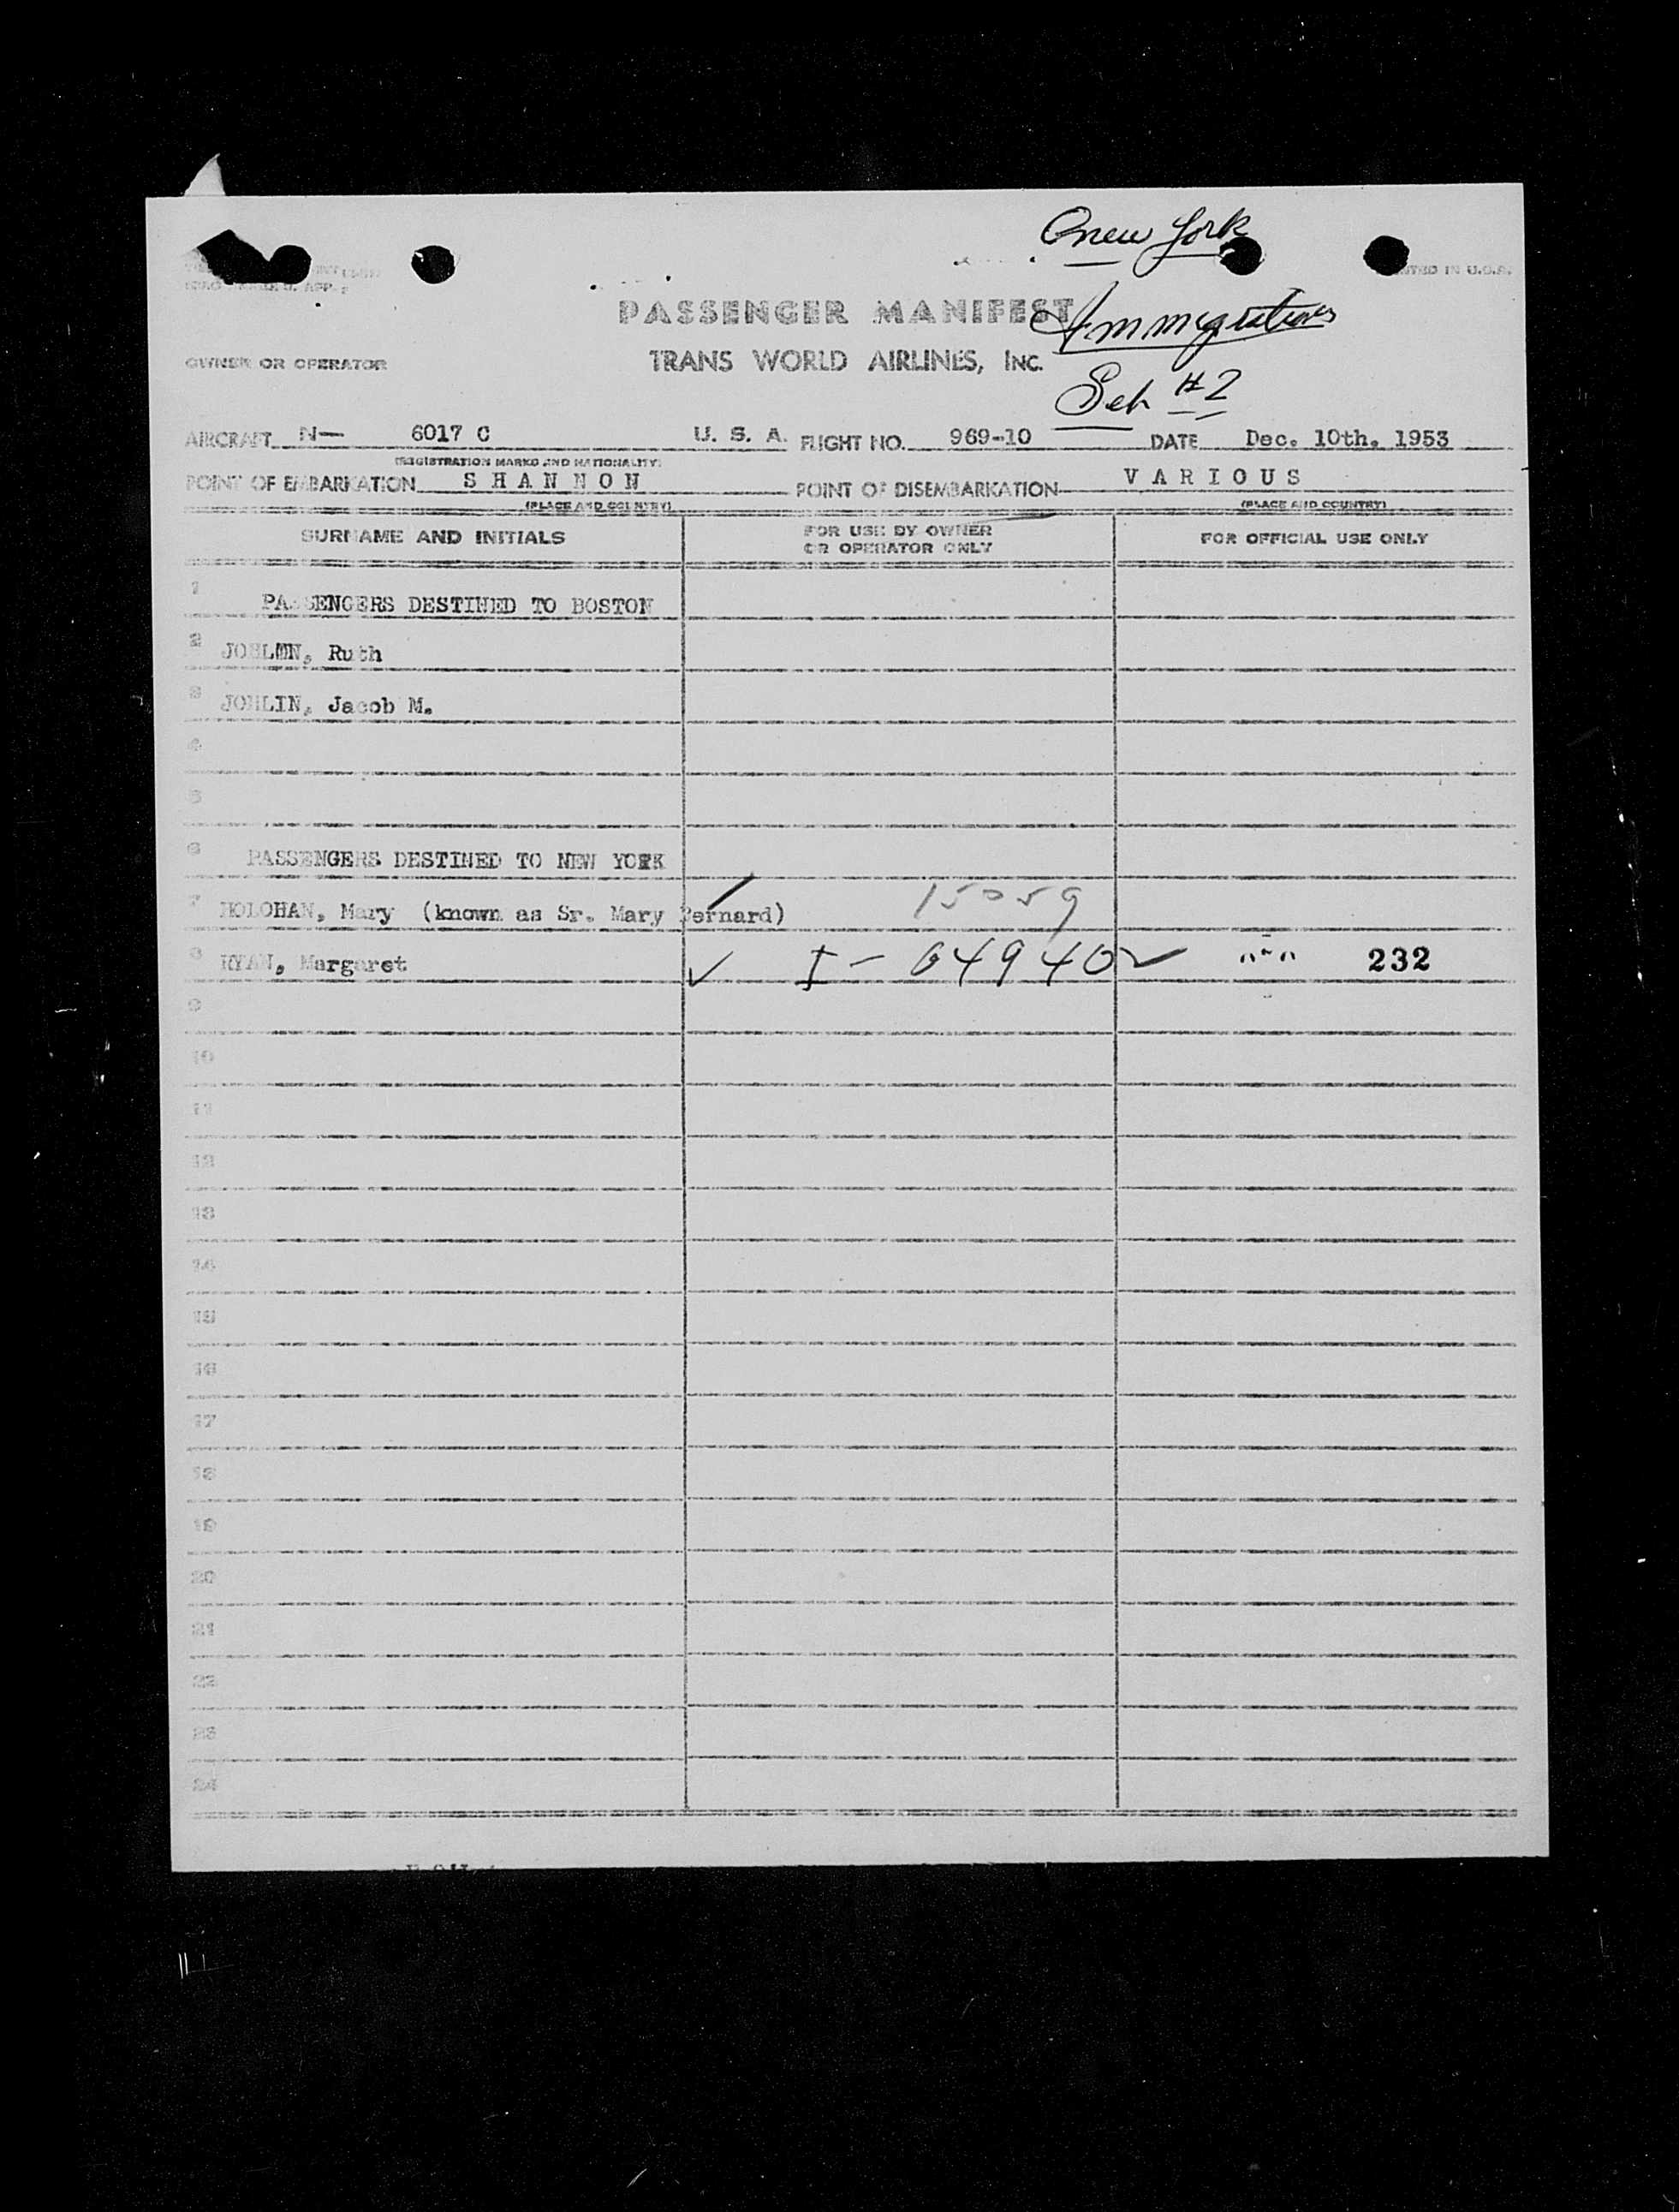 new York
PRINTED IN U.S.A.
APP.
PASSENGER MANIFEST
Immigration
OWNER OR OPERATOR TRANS WORLD AIRLINES, INC.
Set #2
AIRCRAFT N- 6017 C U. S. A. FLIGHT NO. 969-10 DATE Dec. 10th. 1953
(REGISTRATION MARKS AND NATIONALITY)
POINT OF EMBARKATION S H A N N O N POINT OF DISEMBARKATION V A R I O U S
(PLACE AND COUNTRY) (PLACE AND COUNTRY)
SURNAME AND INITIALS FOR USE BY OWNER OR OPERATOR ONLY FOR OFFICIAL USE ONLY
1 PASSENGERS DESTINED TO BOSTON
2 JOHLIN, Ruth
3 JOHLIN, Jacob M.
4
5
6 PASSENGERS DESTINED TO NEW YORK
7 HOLOHAN, Mary (known as Sr. Mary Bernard) 15059
8 RYAN, Margaret ✓ I-649402 232
9
10
11
12
13
14
15
16
17
18
19
20
21
22
23
24